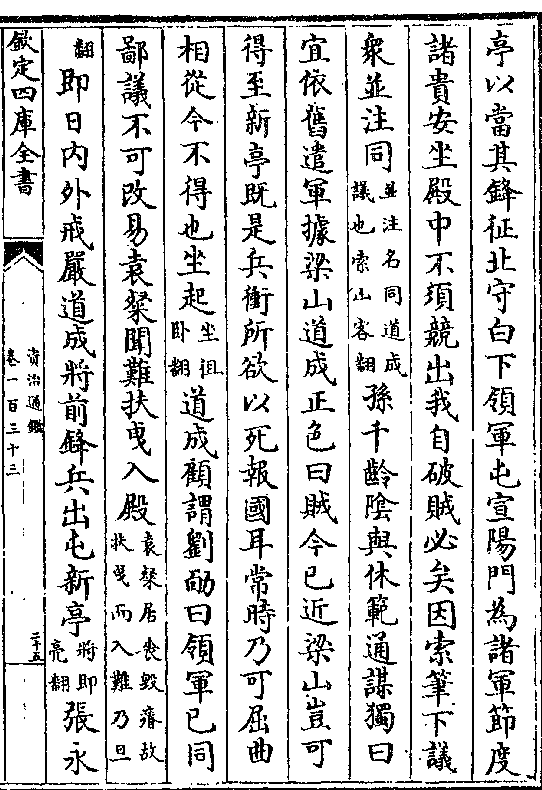 亭以當其鋒征北守白下領軍屯宣陽門為諸軍節度
諸貴安坐殿中不須競出我自破賊必矣因索筆下議
衆並注同並注名同道成議也索山客翻孫千齡陰與休範通謀獨曰
宜依舊遣軍據梁山道成正色曰賊今已近梁山豈可
得至新亭既是兵衝所欲以死報國耳常時乃可屈曲
相從今不得也坐起坐徂卧翻道成顧謂劉勔曰領軍已同
鄙議不可改易袁粲聞難扶曵入殿袁粲居喪毀瘠故扶曵而入難乃旦
翻即日内外戒嚴道成將前鋒兵出屯新亭將即亮翻張永
欽定四庫全書
資治通鑑
卷一百三十三
二十五